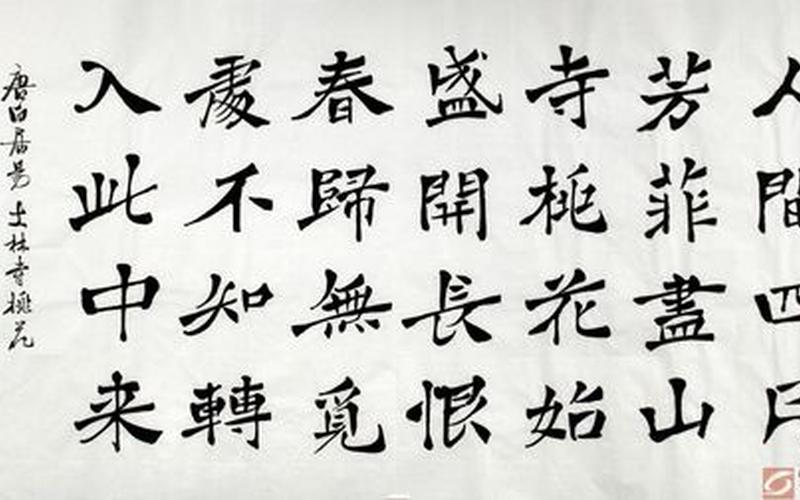 人間四月
芳菲盡山
寺桃花始
盛開長恨
春歸無覓
處不知轉
入此中来
唐白居易大林寺桃花